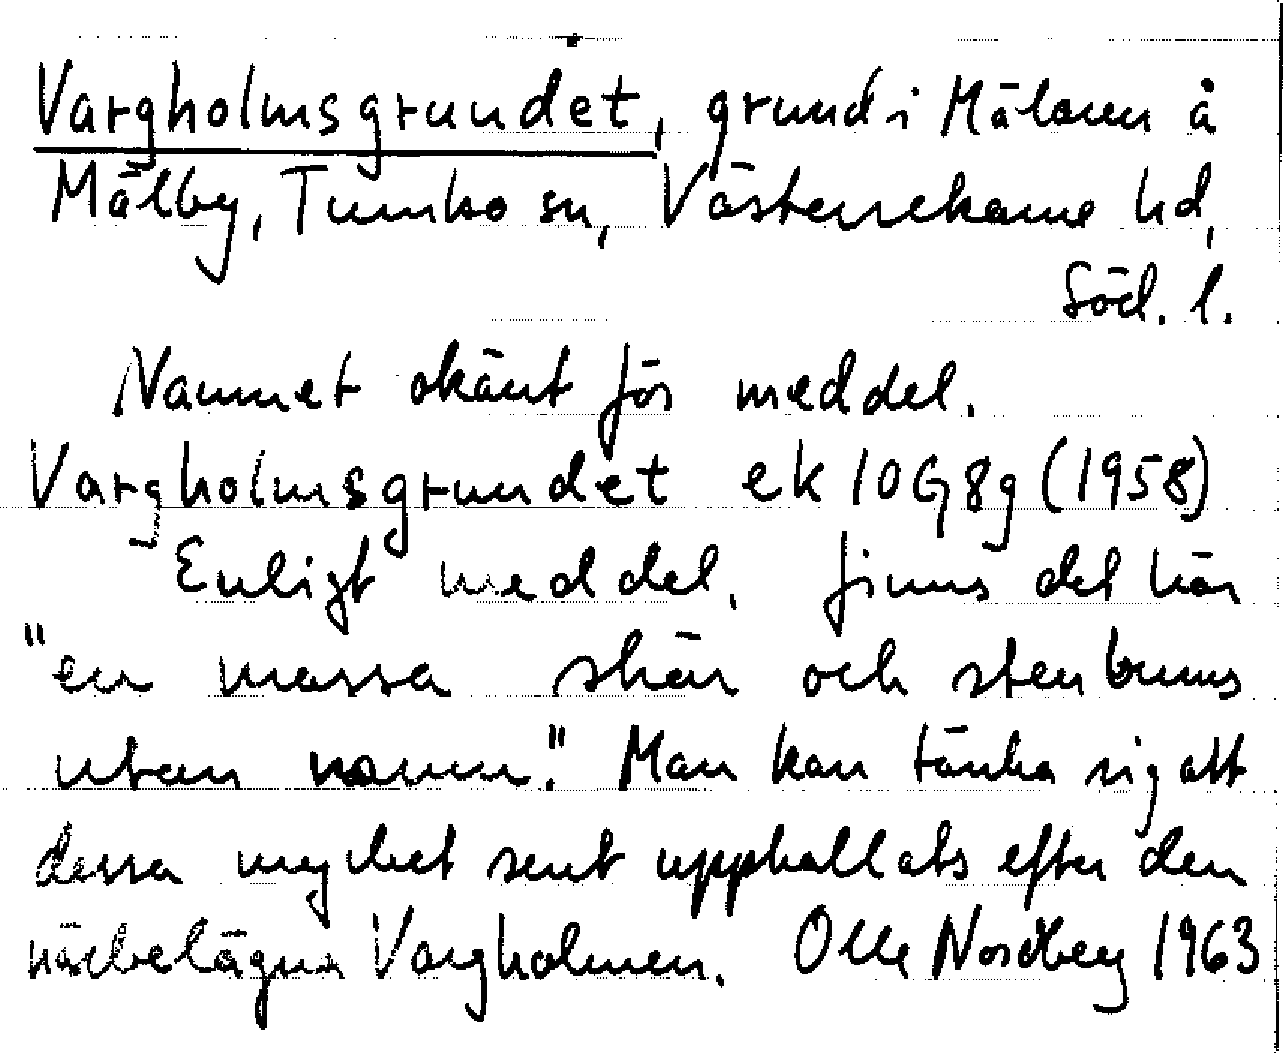 Vargholmsgrundet, grund i Mälaren å
Mälby, Tumbo sn, Västerrekarne hd,
Söd. l.
Namnet okänt för meddel.
Vargholmsgrundet ek 10G8g (1958)
Enligt meddel. finns det här
"en massa skär och stenbunns
utan namn." Man kan tänka sig att
dessa mycket sent uppkallats efter den
närbelägna Vargholmen. Olle Nordberg 1963